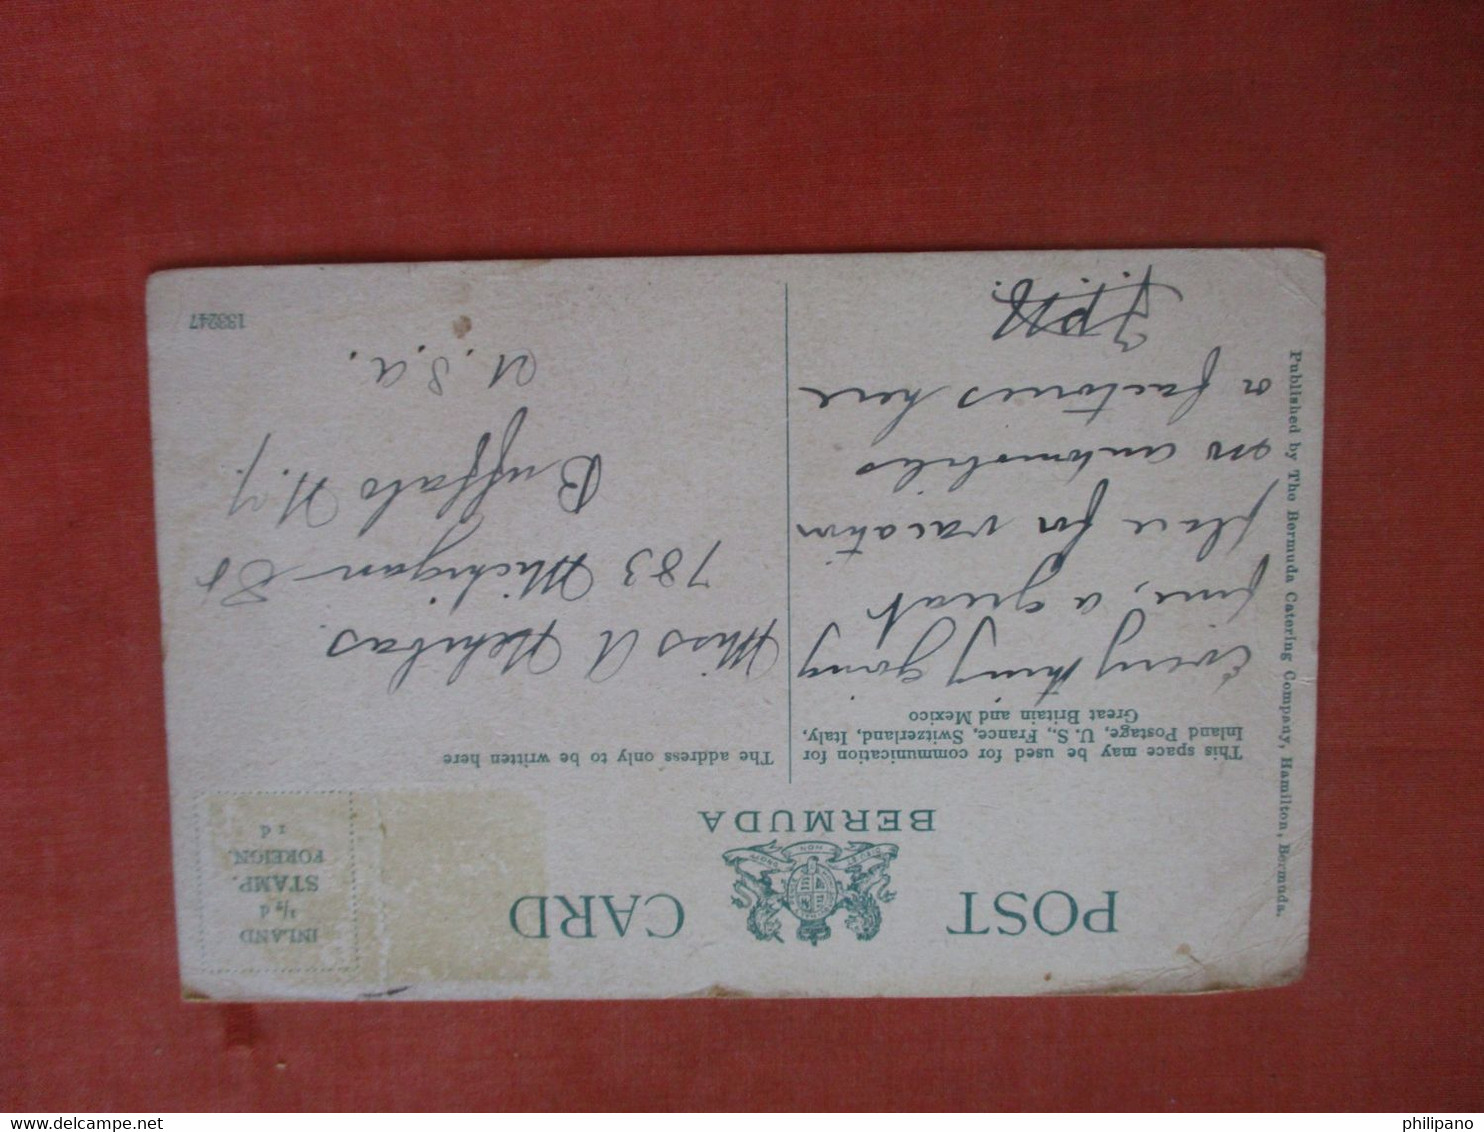 POST CARD
BERMUDA
INLAND
1/2 d
STAMP.
FOREIGN.
1 d
This space may be used for communication for
Inland Postage, U. S., France, Switzerland, Italy,
Great Britain and Mexico
The address only to be written here
Everything going
fine, a great
place for vacation
no automobiles
or factories here
Miss A
783 Michigan St
Buffalo N.Y.
U.S.A.
133247
Published by The Bermuda Catering Company, Hamilton, Bermuda.
philipano
delcampe.net